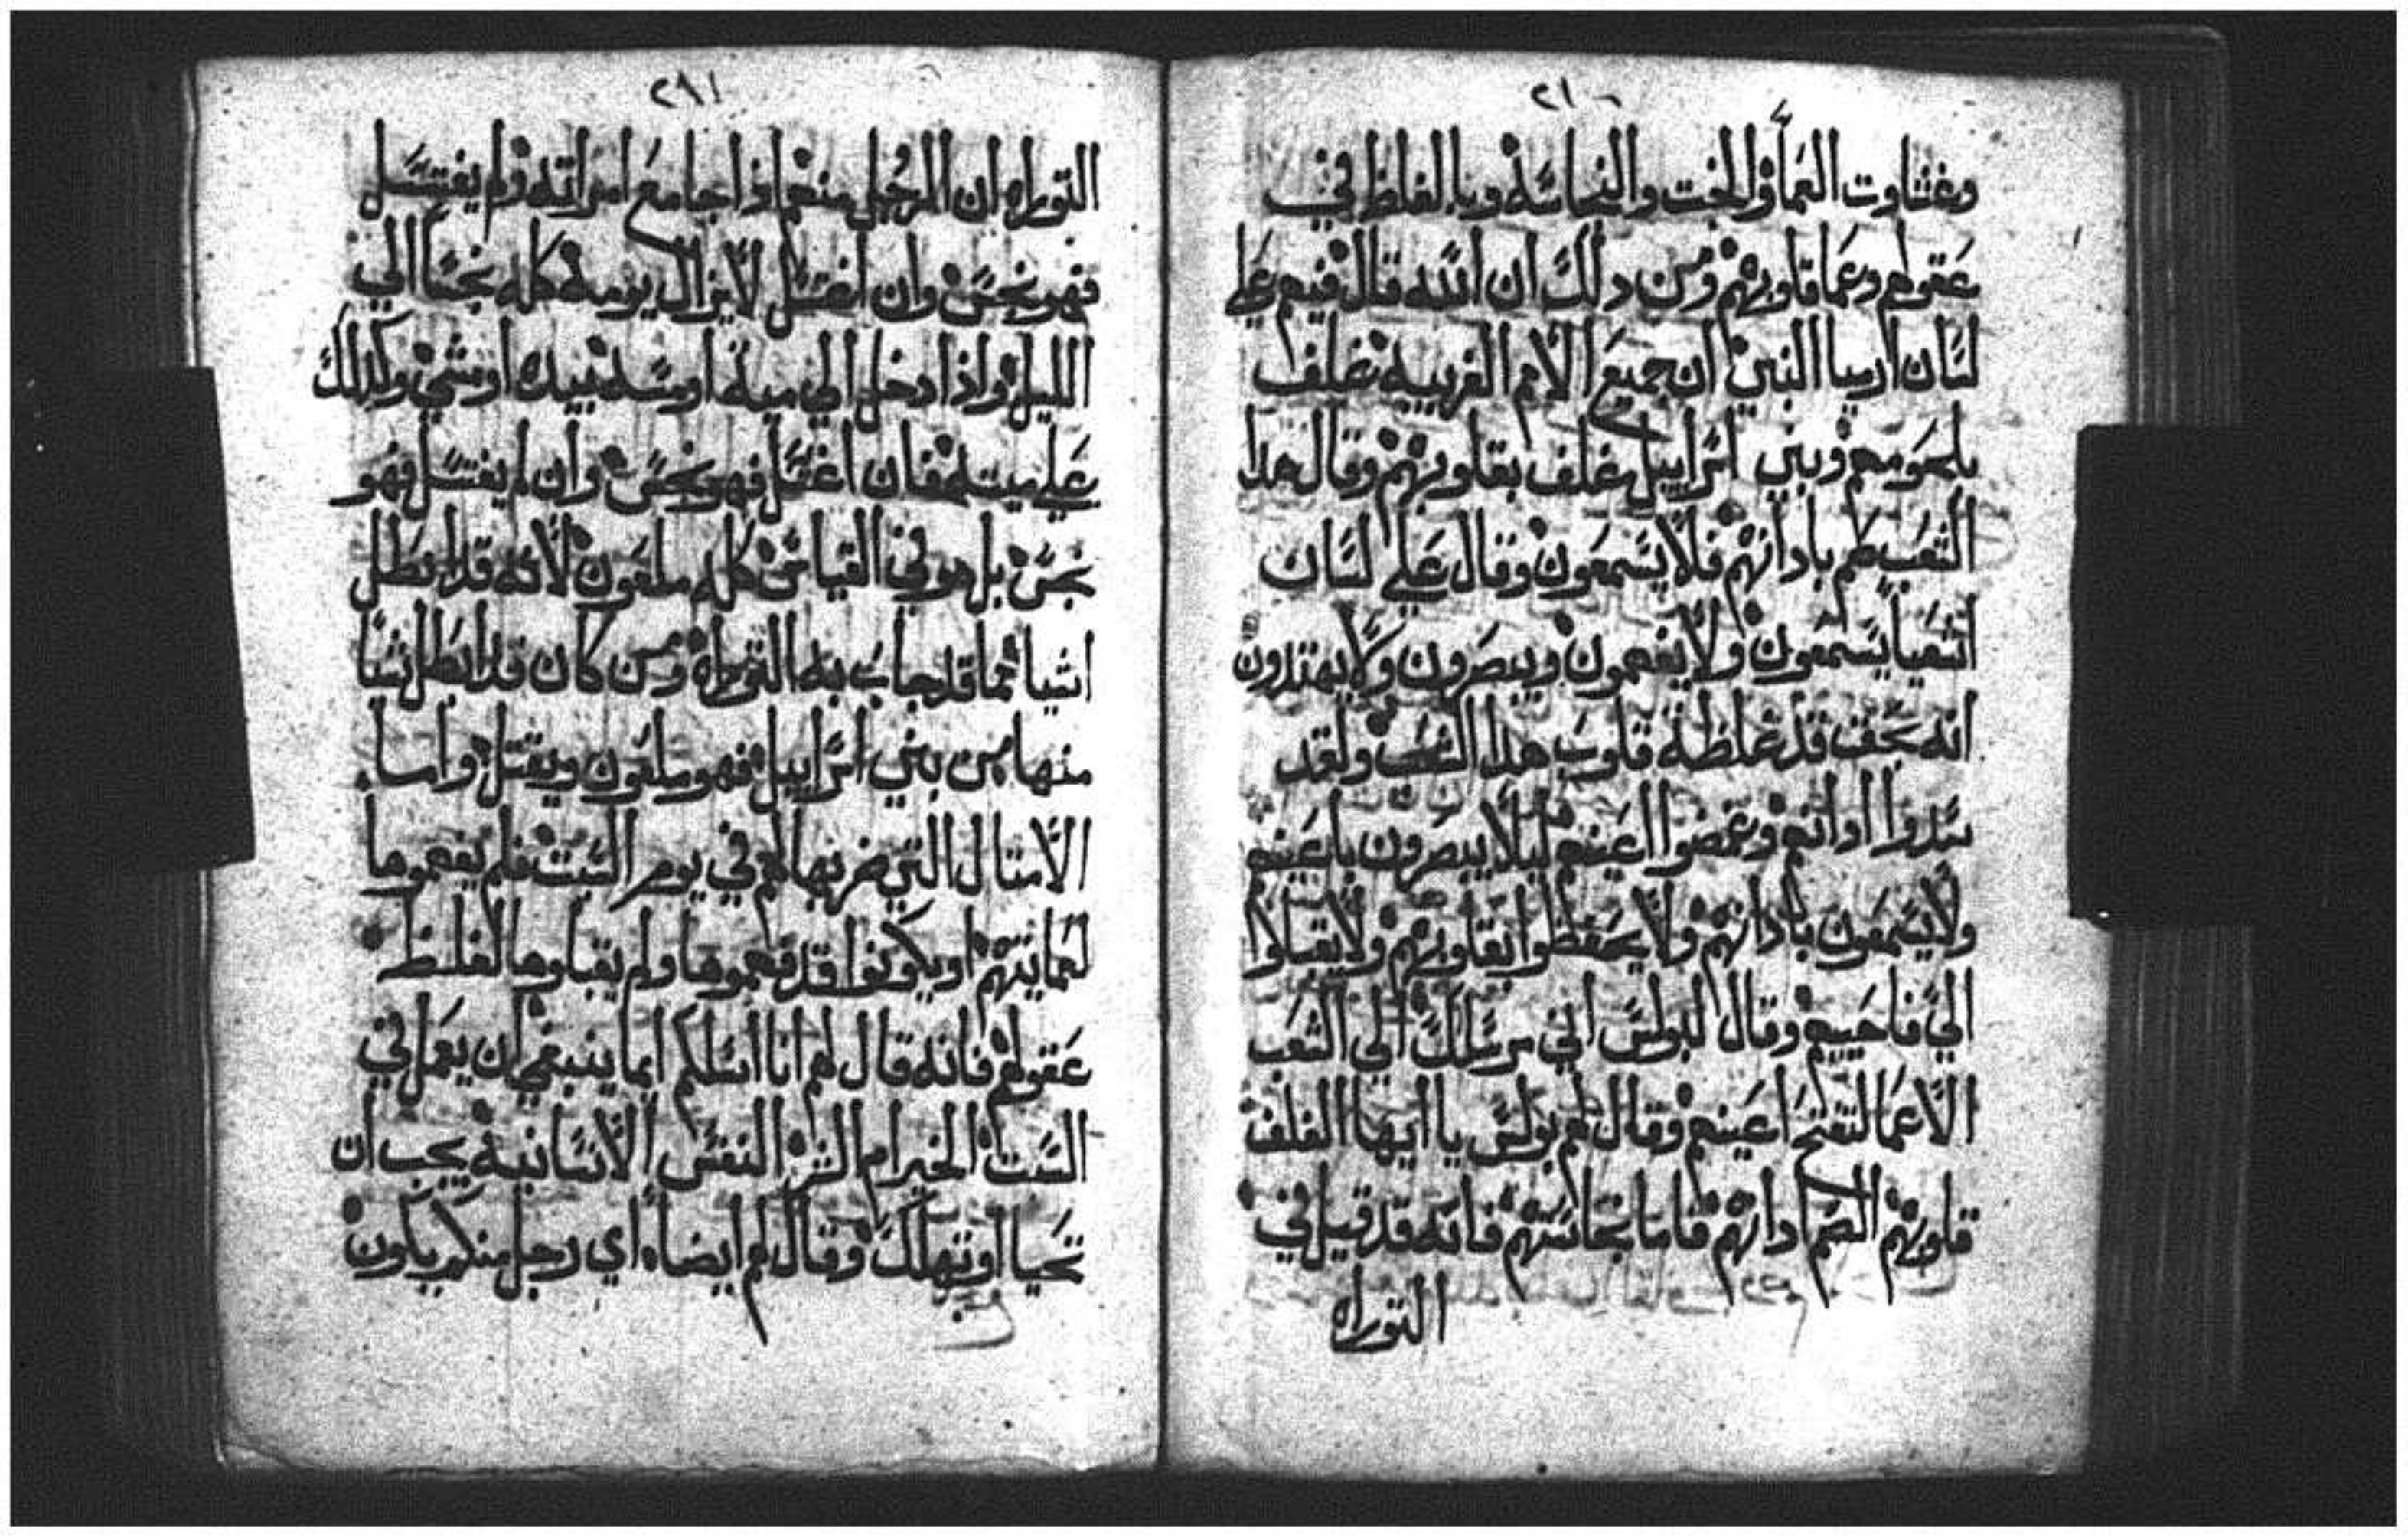 ٢١٠
وغشاوت العمأ والخت والنجاسة وبالغلظ في
عقولهم وعما قلوبهم ومن دلك ان الله قال فيهم على
لسان ارميا النبي ان جميع الامم الغريبه غلف
بلحومهم وبني اسراييل غلف بقلوبهم وقال هدا
الشعب صم بادانهم فلا يسمعون وقال على لسان
اشعيا يسمعون ولا يفهمون ويبصرون ولا يهتدون
انه بحق قد غلظة قلوب هدا الشعب ولقد
سدوا ادانهم وغمضوا اعينهم ليلا يبصرون باعينهم
ولا يسمعون بادانهم ولا يحفظوا بقلوبهم ولا يقبلوا
الي فاحييهم وقال لبولس اني مرسلك الى الشعب
الاعما لتفتح اعينهم وقال لهم بولس يا ايها الغلف
قلوبهم الصم ادانهم فاما نجاستهم فانه قد قيل في
التوراه
٢٩١
التوراه ان الرجل منهم اذا جامع امراته ولم يغتسل
فهو نجس وان اغتسل لا يزال يومه كله نجسا الي
الليل واذا دخل الي مية او مسه بيده او مشي وكدلك
على ميته فان اغتسل فهو نجس وان لم يغتسل فهو
نجس بل هو في القياس كله ملعون لانه قد ابطل
اشيا مما قد جاب به التوراه ومن كان قد ابطل شيا
منها من بني اسراييل فهو ملعون ويقتل واما
الامتال التي ضربها لهم في يوم السبت فلم يفهموها
لعمايتهم او يكونوا قد فهموها ولم يقبلوها لغلظ
عقولهم فانه قال لهم انا اسلكم ايما ينبغي ان يعمل في
السبت الخير ام الشر النفس الانسانية يجب ان
تحيا او تهلك وقال لهم ايضا اي رجل منكم يكون